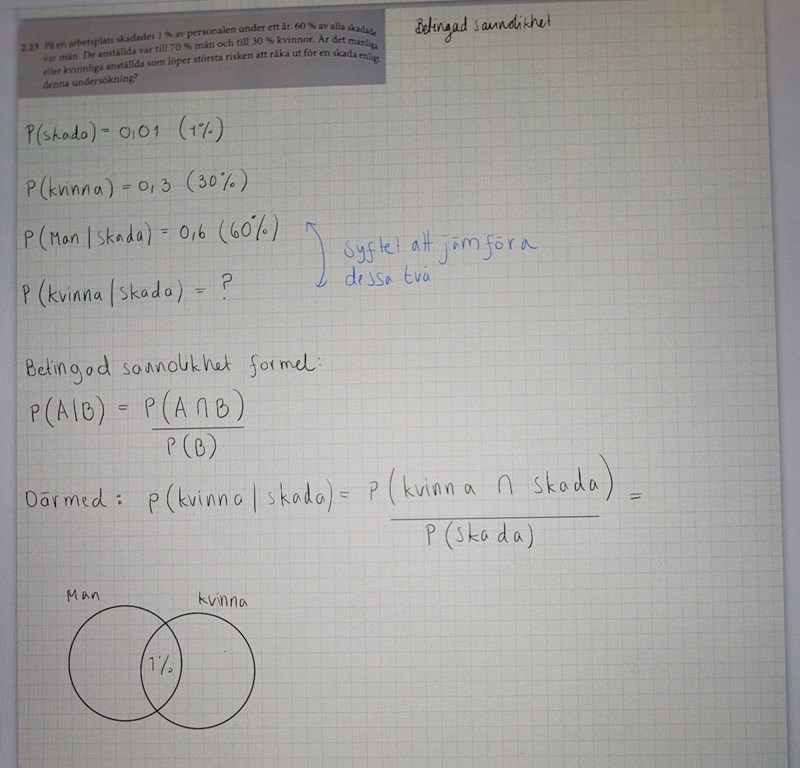 Betingad sannolikhet
2.23 På en arbetsplats skadades 1 % av personalen under ett år. 60 % av alla skadade
var män. De anställda var till 70 % män och till 30 % kvinnor. Är det manliga
eller kvinnliga anställda som löper största risken att råka ut för en skada enligt
denna undersökning?
P(skada) = 0,01 (1%)
P(kvinna) = 0,3 (30%)
P(Man | skada) = 0,6 (60%)
P(kvinna | skada) = ?
Syftet att jämföra
dessa två
Betingad sannolikhet formel:
P(A|B) = P(A ∩ B)
P(B)
Därmed: P(kvinna | skada) = P(kvinna ∩ skada) =
P(skada)
Man kvinna
1%